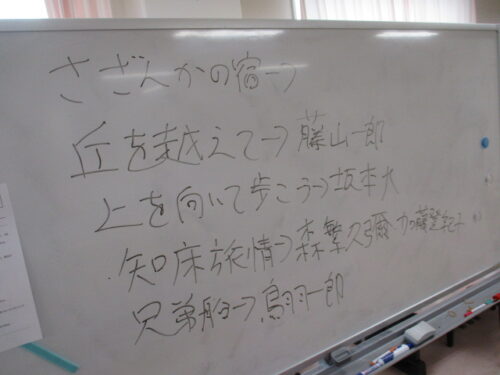 さざんかの宿→
丘を越えて→藤山一郎
上を向いて歩こう→坂本九
知床旅情→森繁久彌 加藤登紀子
兄弟船→鳥羽一郎